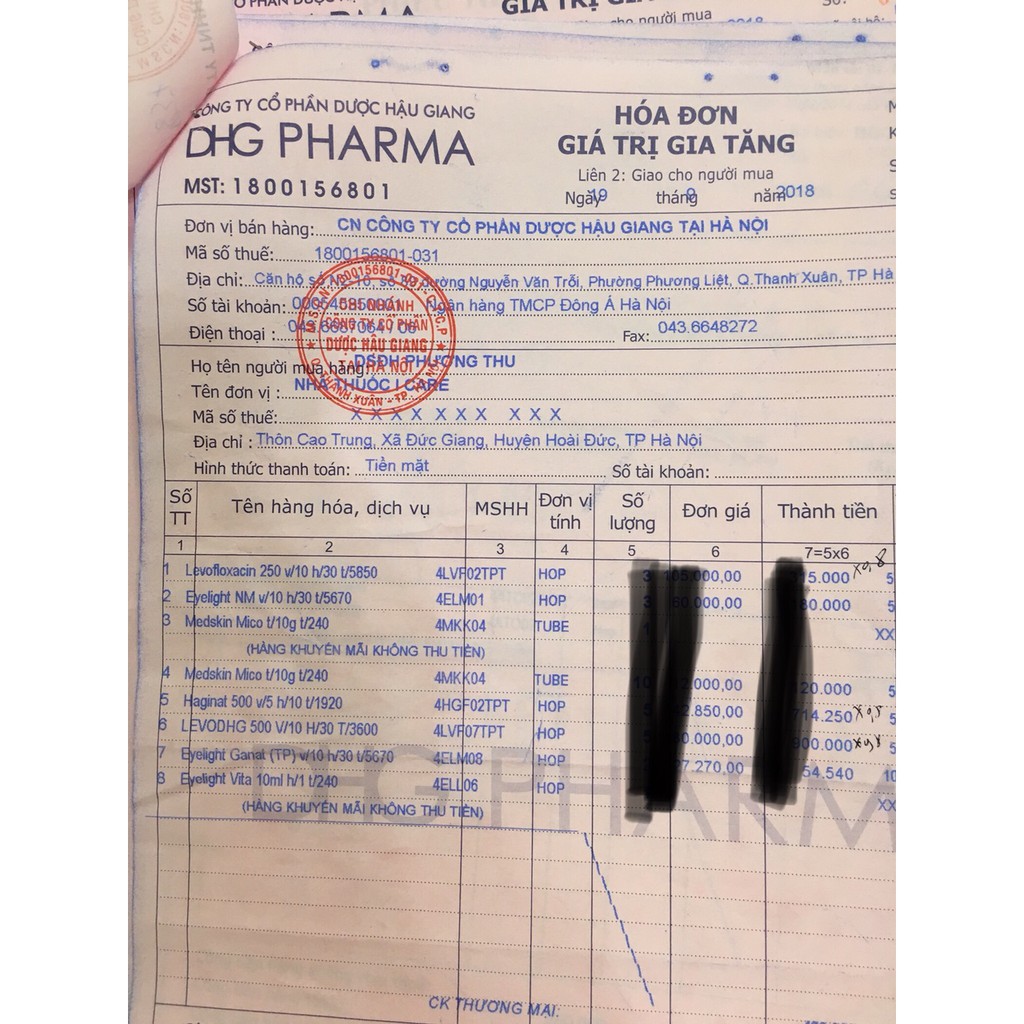 GIÁ TRỊ GI
cho người mua
CÔNG TY CỔ PHẦN DƯỢC HẬU GIANG
DHG PHARMA
MST: 1800156801
HÓA ĐƠN
GIÁ TRỊ GIA TĂNG
Liên 2: Giao cho người mua
Ngày 19 tháng 9 năm 2018
Đơn vị bán hàng: CN CÔNG TY CỔ PHẦN DƯỢC HẬU GIANG TẠI HÀ NỘI
Mã số thuế: 1800156801-031
Địa chỉ: Căn hộ số đường Nguyễn Văn Trỗi, Phường Phương Liệt, Q.Thanh Xuân, TP Hà
Số tài khoản: Ngân hàng TMCP Đông Á Hà Nội
Điện thoại : Fax: 043.6648272
CHI NHÁNH
CÔNG TY CỔ PHẦN
DƯỢC HẬU GIANG
TẠI HÀ NỘI
Q. THANH XUÂN - TP. HÀ NỘI
Họ tên người mua hàng: DSĐH PHƯƠNG THU
Tên đơn vị : NHÀ THUỐC I CARE
Mã số thuế: X X X X X X X X X X
Địa chỉ : Thôn Cao Trung, Xã Đức Giang, Huyện Hoài Đức, TP Hà Nội
Hình thức thanh toán: Tiền mặt Số tài khoản:
Số TT Tên hàng hóa, dịch vụ MSHH Đơn vị tính Số lượng Đơn giá Thành tiền
1 2 3 4 5 6 7=5x6
1 Levofloxacin 250 v/10 h/30 t/5850 4LVF02TPT HOP 3 5.000,00 15.000 x0,8 5
2 Eyelight NM v/10 h/30 t/5670 4ELM01 HOP 3 60.000,00 80.000 5
3 Medskin Mico t/10g t/240 4MKK04 TUBE XX
(HÀNG KHUYẾN MÃI KHÔNG THU TIỀN)
4 Medskin Mico t/10g t/240 4MKK04 TUBE 10 2.000,00 120.000 5
5 Haginat 500 v/5 h/10 t/1920 4HGF02TPT HOP 2.850,00 714.250 x0,8 5
6 LEVODHG 500 V/10 H/30 T/3600 4LVF07TPT HOP 0.000,00 900.000 x0,8 5
7 Eyelight Ganat (TP) v/10 h/30 t/5670 4ELM08 HOP 7.270,00 54.540 10
8 Eyelight Vita 10ml h/1 t/240 4ELL06 HOP XX
(HÀNG KHUYẾN MÃI KHÔNG THU TIỀN)
DHG PHARM
CK THƯƠNG MẠI: